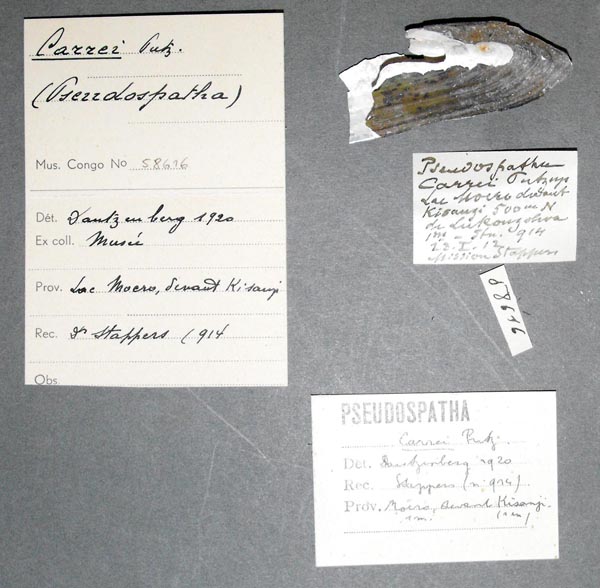 Carrei Putz.
(Pseudospatha)
Mus. Congo No 58616
Dét. Dautzenberg 1920
Ex coll. Musée
Prov. Lac Moero, devant Kisanji
Rec. Dr Stappers (914
Obs.
Pseudospatha
Carrei Putzeys
Lac Moero devant
Kisanji 500m N
de Lukonzolwa
1m - Stn. 914
23.I.12
Mission Stappers
PSEUDOSPATHA
Carrei Putz.
Dét. Dautzenberg 1920
Rec. Stappers (n° 914)
Prov. Moero, devant Kisanji
1m.